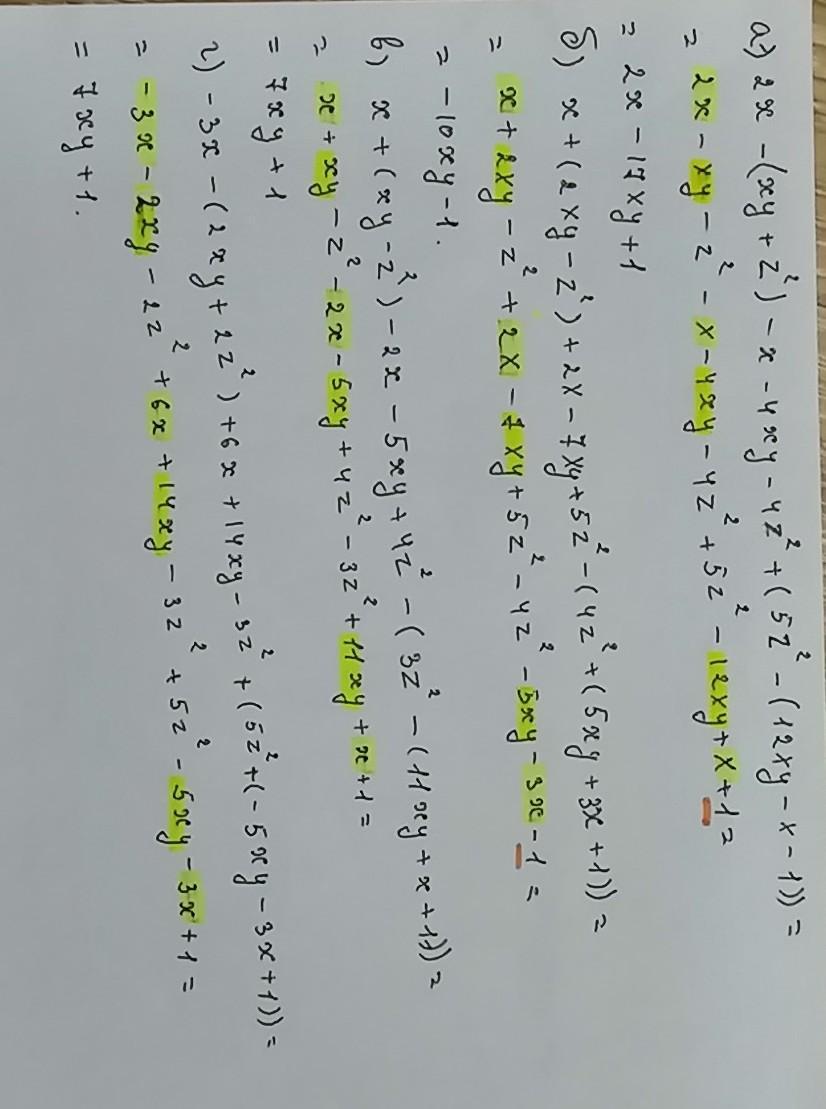 а) 2x - (xy + z²) - x - 4xy - 4z² + (5z² - (12xy - x - 1)) =
= 2x - xy - z² - x - 4xy - 4z² + 5z² - 12xy + x + 1 =
= 2x - 17xy + 1
б) x + (2xy - z²) + 2x - 7xy + 5z² - (4z² + (5xy + 3x + 1)) =
= x + 2xy - z² + 2x - 7xy + 5z² - 4z² - 5xy - 3x - 1 =
= -10xy - 1.
в) x + (xy - z²) - 2x - 5xy + 4z² - (3z² - (11xy + x + 1)) =
= x + xy - z² - 2x - 5xy + 4z² - 3z² + 11xy + x + 1 =
= 7xy + 1
г) -3x - (2xy + 2z²) + 6x + 14xy - 3z² + (5z² + (-5xy - 3x + 1)) =
= -3x - 2xy - 2z² + 6x + 14xy - 3z² + 5z² - 5xy - 3x + 1 =
= 7xy + 1.